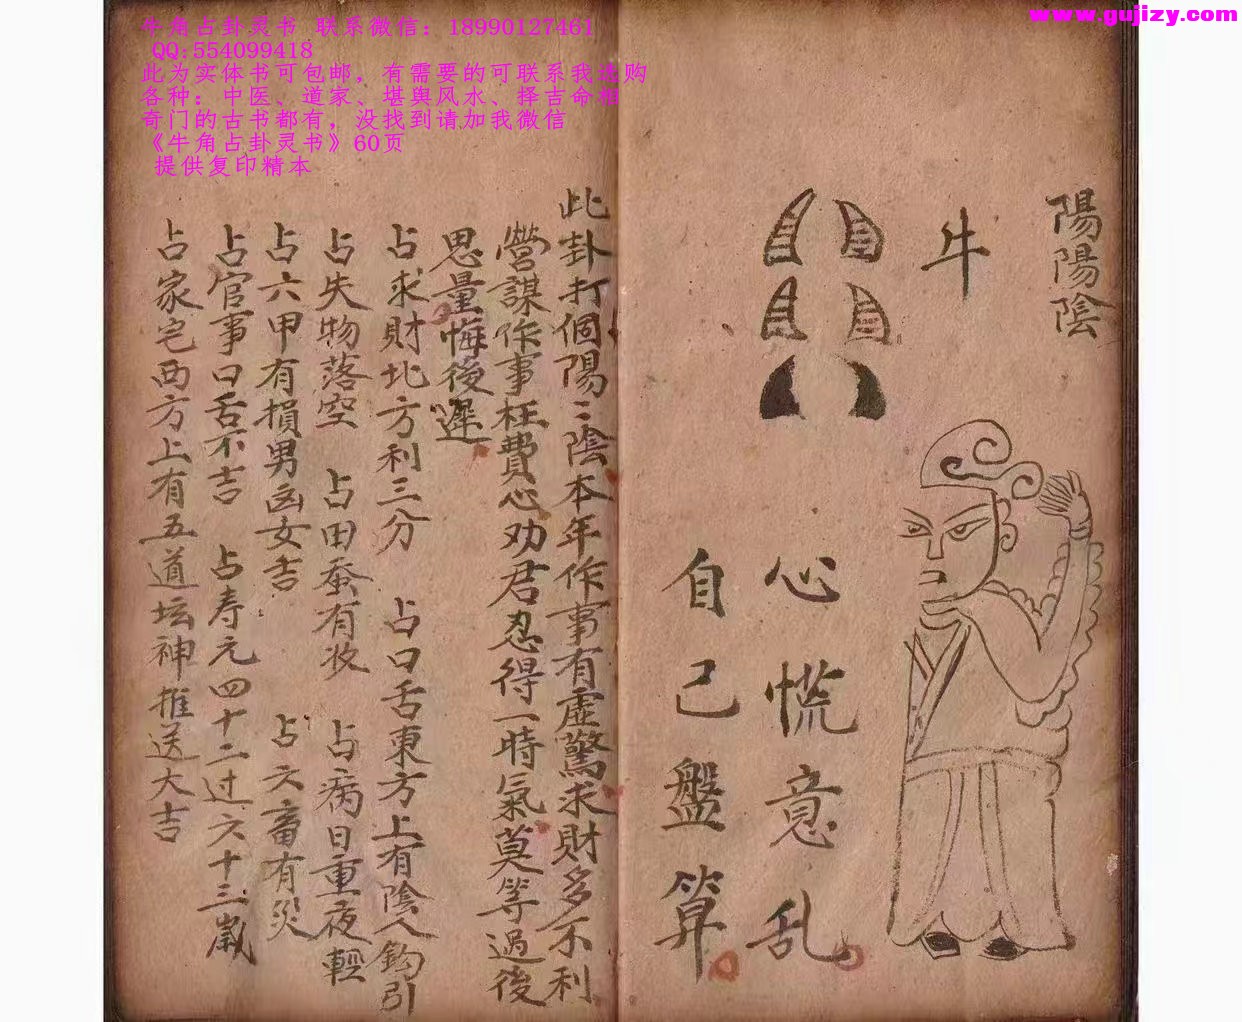 牛角占卦灵书 联系微信：18990127461
QQ:554099418
此为实体书可包邮，有需要的可联系我选购
各种：中医、道家、堪舆风水、择吉命相
奇门的古书都有，没找到请加我微信
《牛角占卦灵书》60页
提供复印精本
www.gujizy.com
陽陽陰
牛
心慌意乱
自己盤算
此卦打個陽〻陰本年作事有虛驚求財多不利
營謀作事枉費心劝君忍得一時氣莫等過後
思量悔後遲
占求財北方利三分 占口舌東方上有陰人鈎引
占失物落空 占田蚕有收 占病日重夜輕
占六甲有損男凶女吉 占六畜有災
占官事口舌不吉 占寿元四十二过六十三歲
占家宅西方上有五道坛神推送大吉